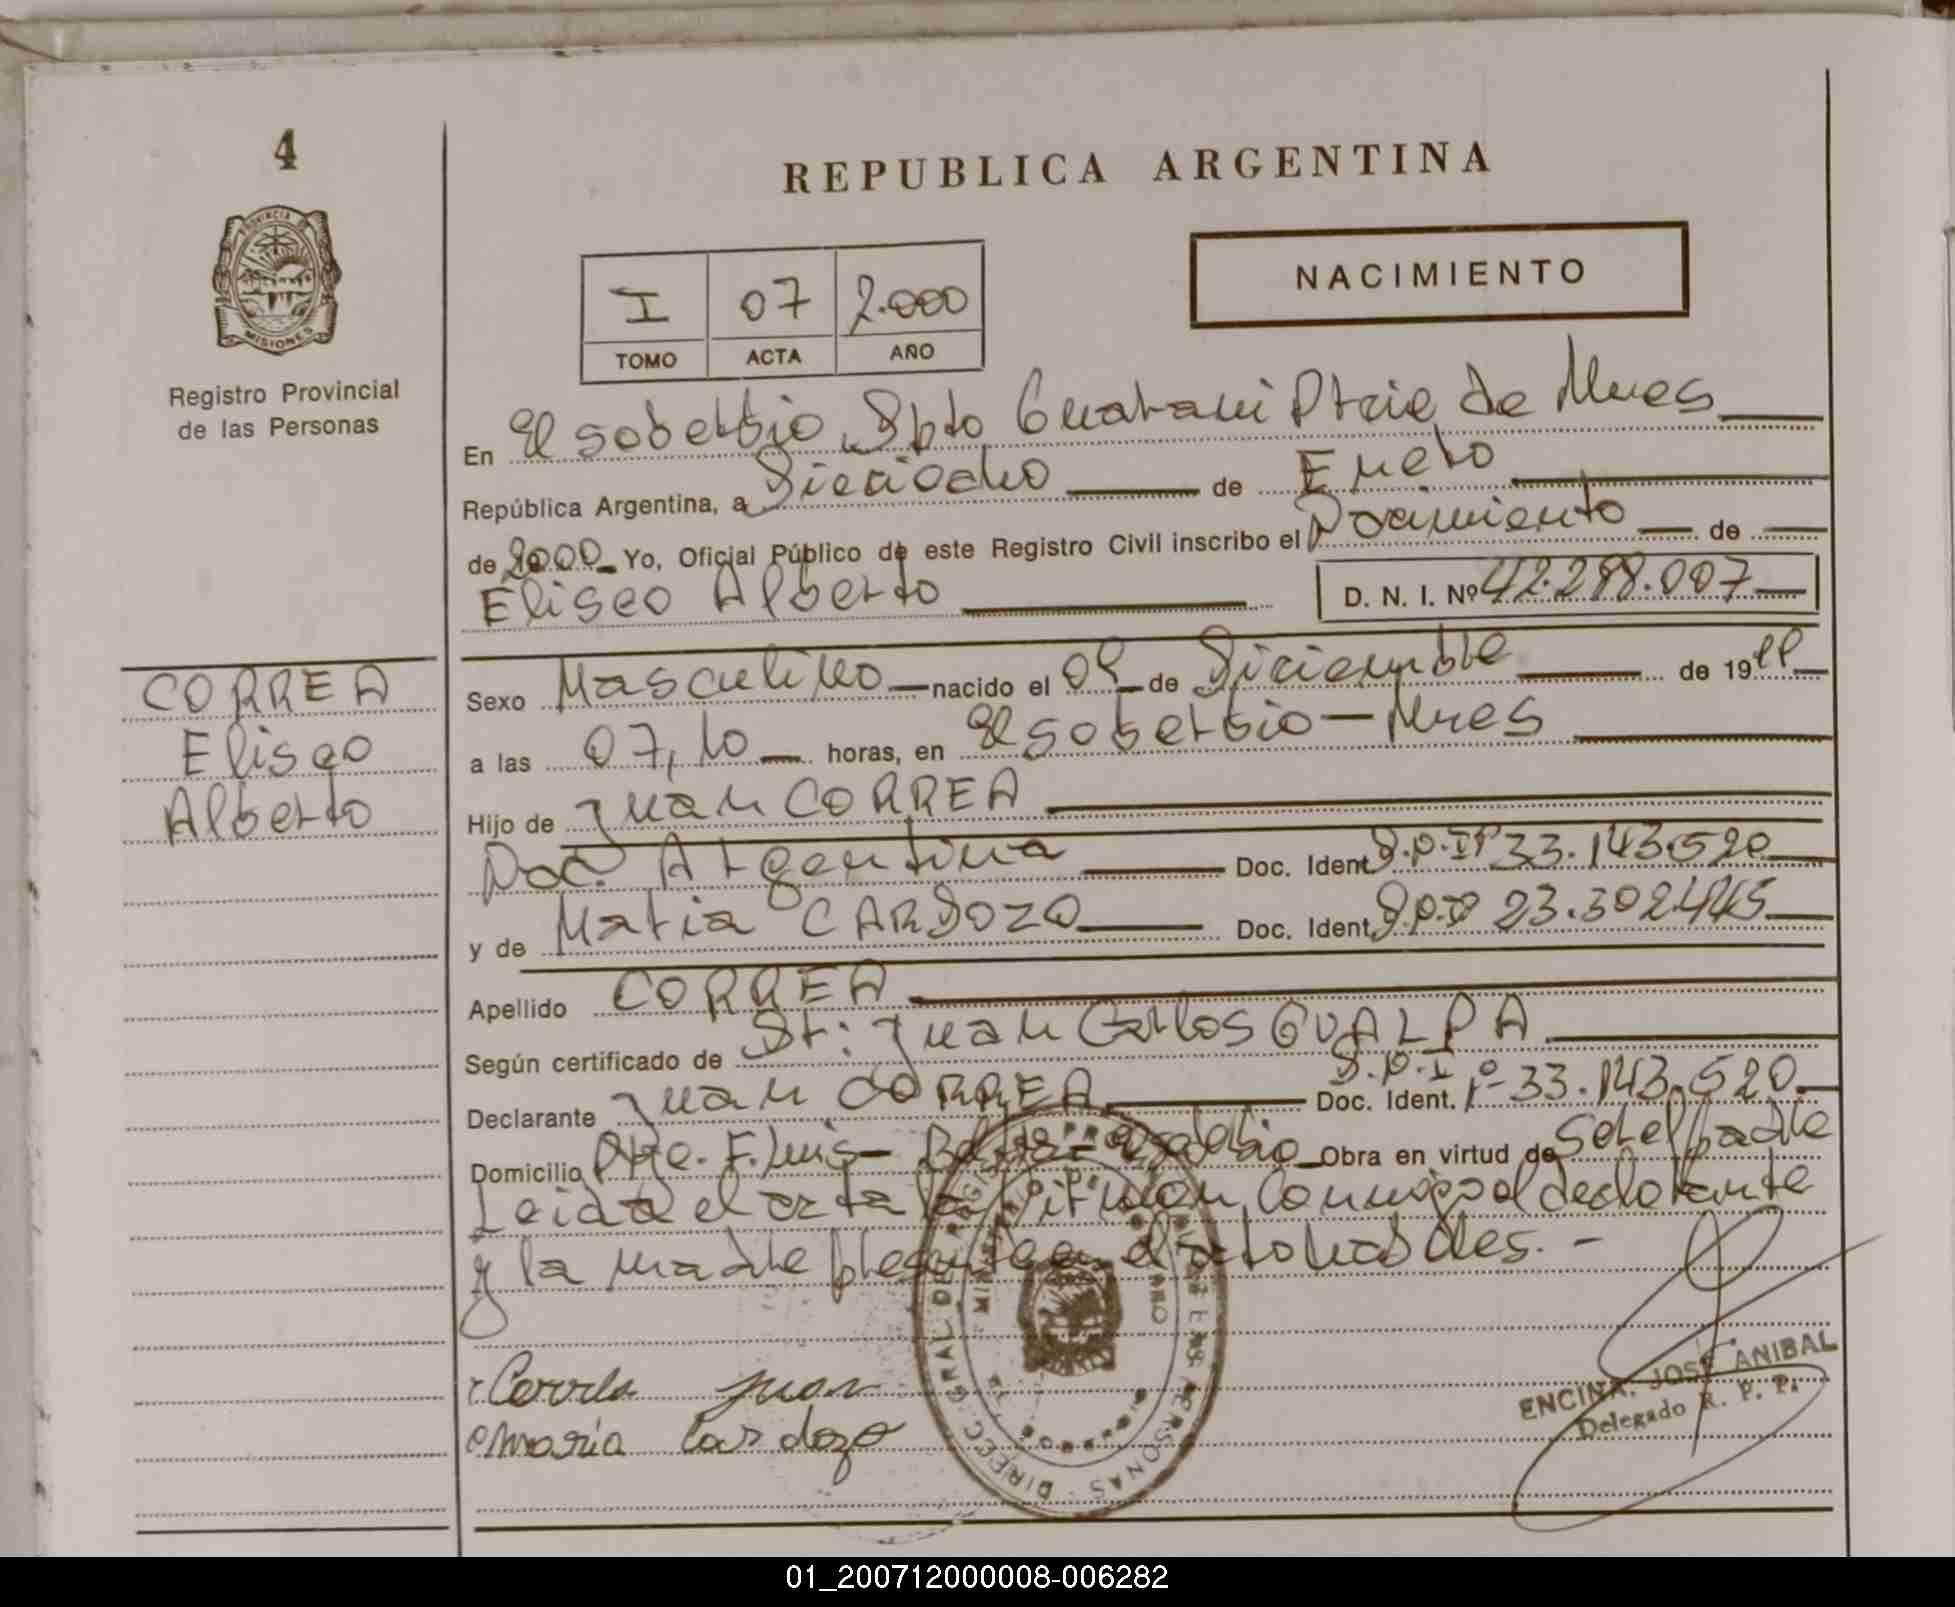 4
REPUBLICA ARGENTINA
PROVINCIA DE
MISIONES
Registro Provincial
de las Personas
NACIMIENTO
I 07 2.000
TOMO ACTA AÑO
En El Soberbio, Dpto Guarani Pcia de Mnes
República Argentina, a Dieciocho de Enero
de 2000 Yo, Oficial Público de este Registro Civil inscribo el Nacimiento de
Eliseo Alberto D. N. I. Nº 42.298.007
CORREA
Eliseo
Alberto
Sexo Masculino nacido el de Diciembre de 19
a las 07,10 horas, en El Soberbio - Mnes
Hijo de Juan CORREA
Nac. Argentina Doc. Ident. 33.143.520
y de Maria CARDOZO Doc. Ident. 23.302.445
Apellido CORREA
Según certificado de Dr: Juan Carlos GUALPA
Declarante Juan CORREA Doc. Ident. 33.143.520
Domicilio Pje. F. Luis - Soberbio Obra en virtud de Ser el padre
Leida el acta la firman conmigo el declarante
y la madre
Correa Juan
Maria Cardozo
ENCINA, JOSE ANIBAL
Delegado R. P. P.
01_200712000008-006282